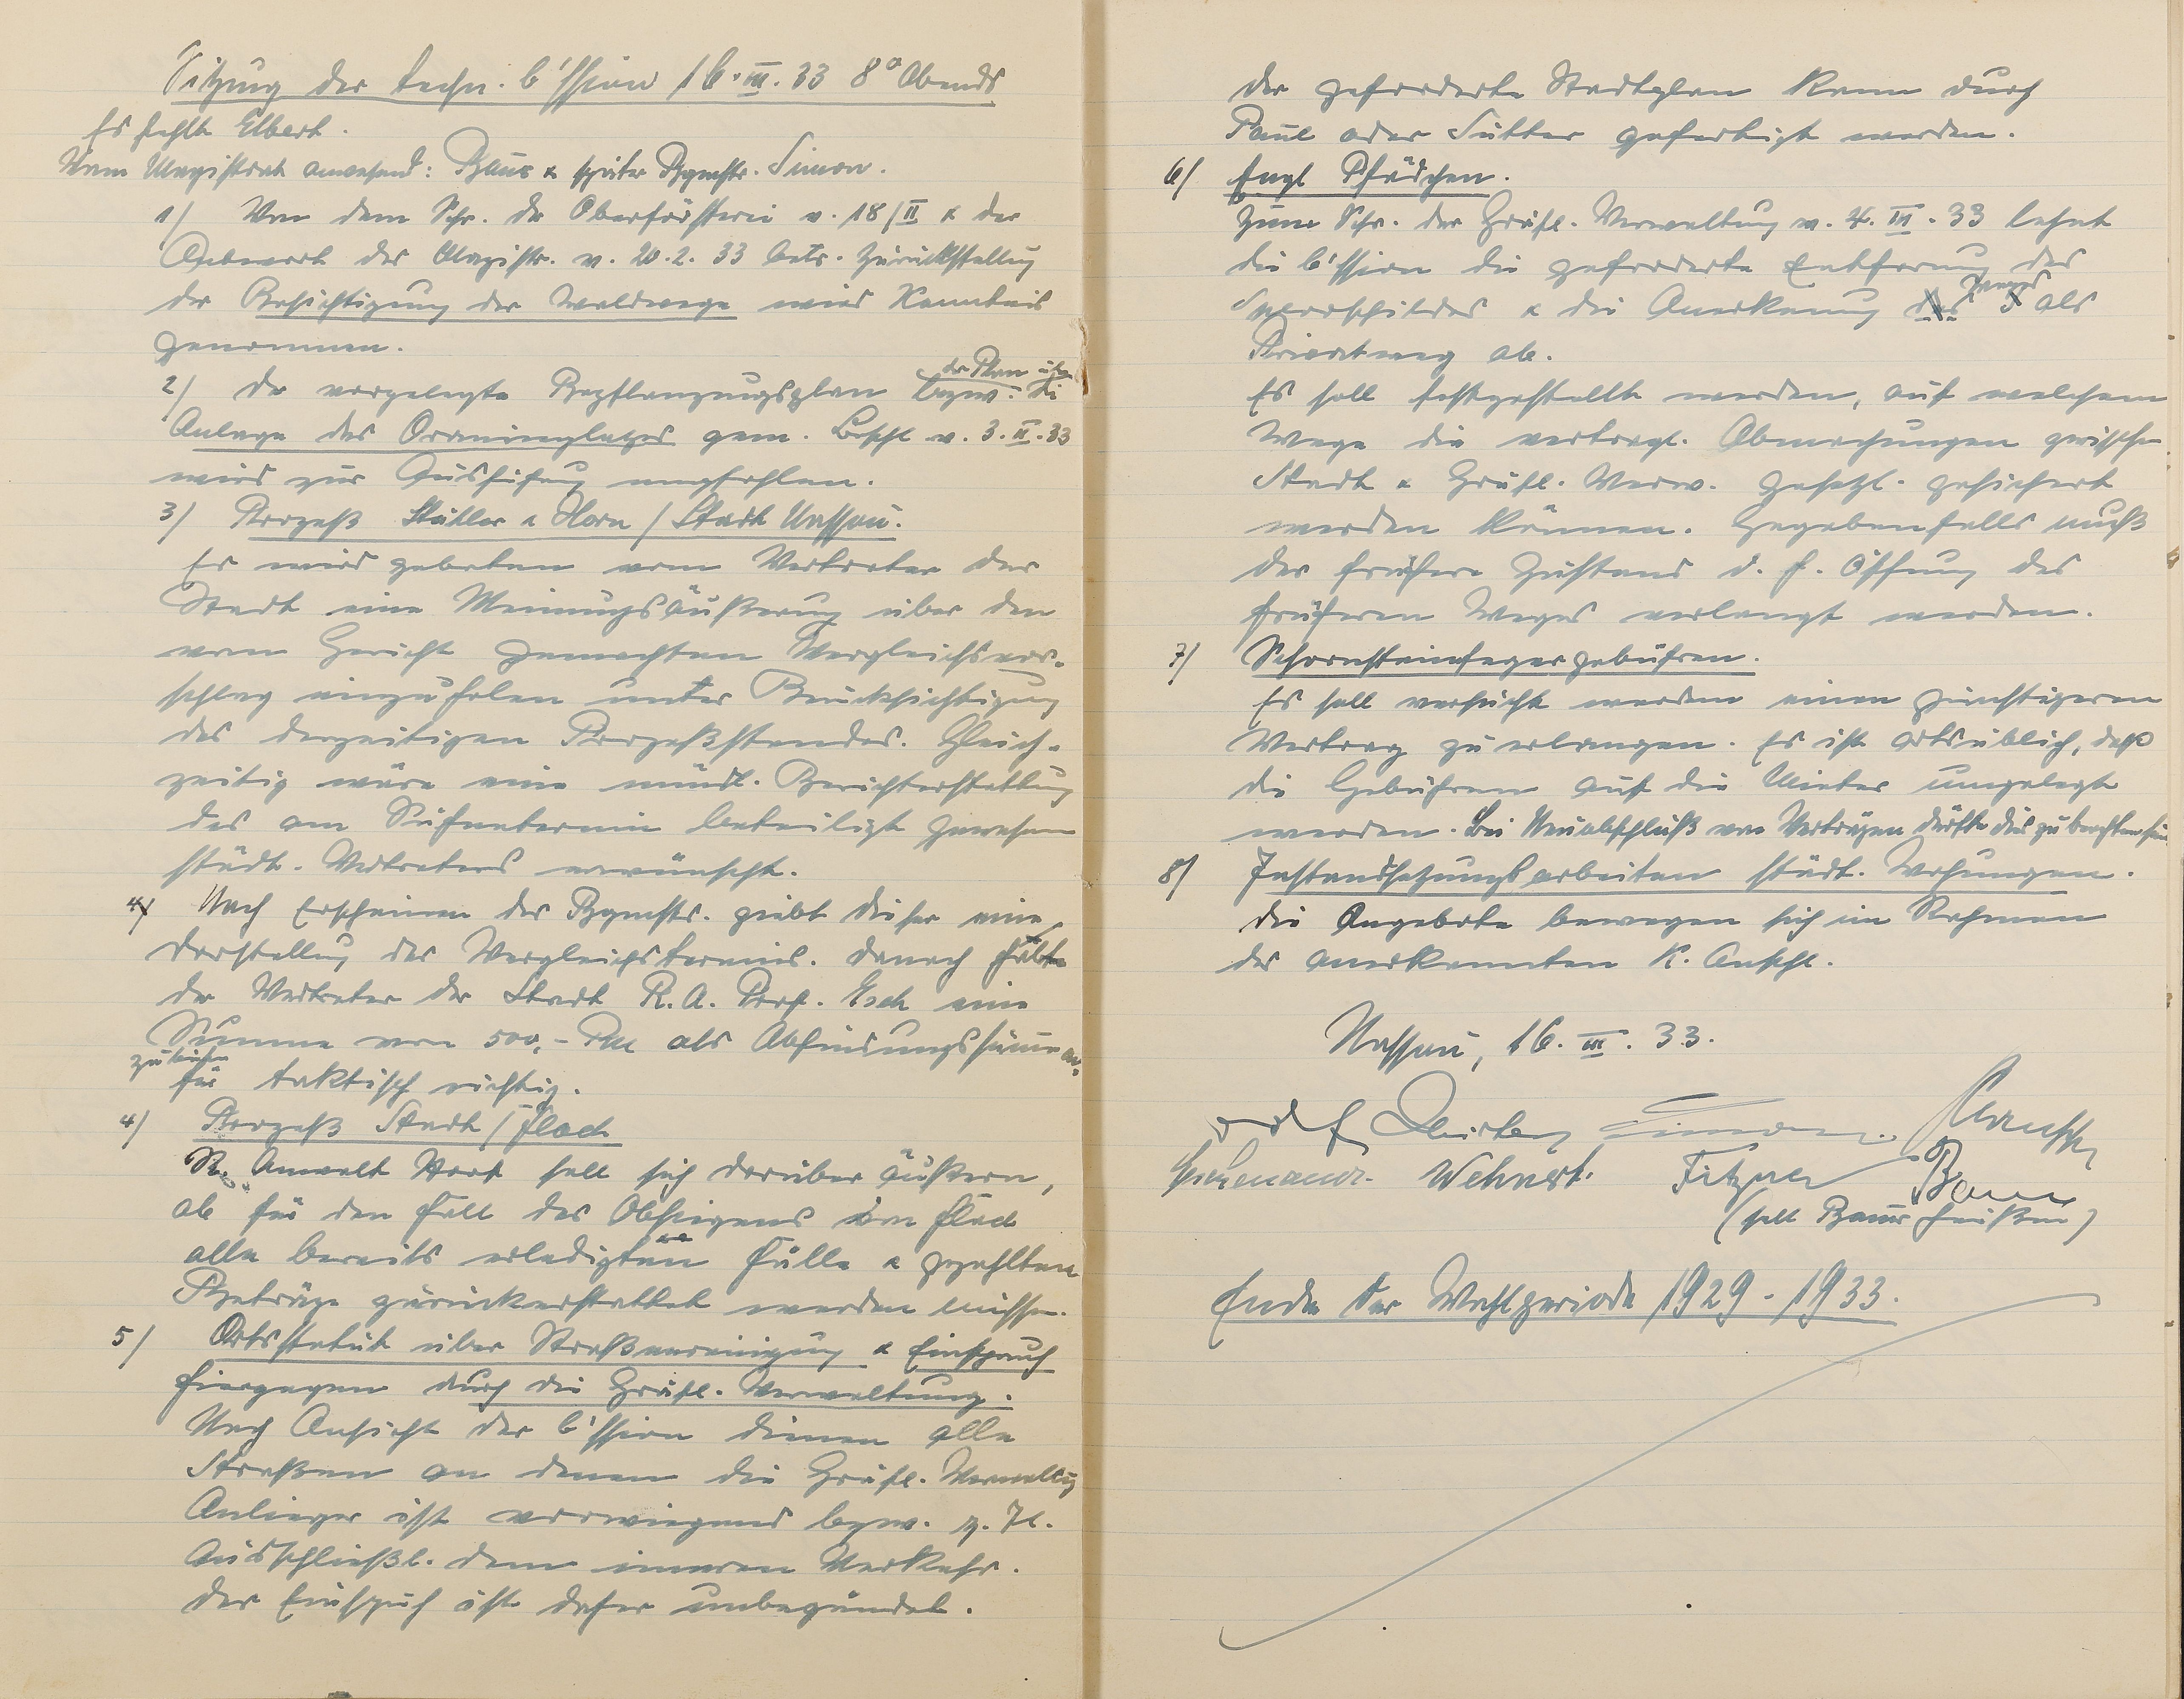 Sitzung der techn. C'ssion 16.III.33 8° Abends
Es fehlt Elbert.
Vom Magistrat anwesend: Baus & später Bgmstr. Simon.
1) Von dem Schr. der Oberförsterei v. 18/II & der
Antwort des Magistr. v. 20.2.33 betr. Zurückstellung
der Besichtigung der Waldwege wird Kenntnis
genommen.
2) der vorgelegte Bepflanzungsplan bzw. der Plan über die
Anlage des Oranienplatzes gem. Beschl. v. 3.II.33
wird zur Ausführung empfohlen.
3) Prozeß Stütler & Horn / Stadt Nassau.
Es wird gebeten vom Vertreter der
Stadt eine Meinungsäußerung über den
vom Gericht gemachten Vergleichsvor-
schlag einzuholen unter Berücksichtigung
des derzeitigen Prozeßstandes. Gleich-
zeitig wäre eine mündl. Berichterstattung
des am Sühnetermin beteiligt gewesenen
städt. Vertreters erwünscht.
Nach Erscheinen des Bgmstr. giebt dieser eine
Darstellung des Vergleichstermins. Danach hält
der Vertreter der Stadt R.A. Prof. Esch eine
Summe von 500,- RM als Abfindungssumme an-
zubieten für taktisch richtig.
4) Prozeß Stadt / Flach
R. Anwalt soll sich darüber äußern,
ob für den Fall des Obsiegens von Flach
alle bereits erledigten Fälle & gezahlten
Beträge zurückerstattet werden müssen.
5) Ortsstatut über Straßenreinigung & Einspruch
hiergegen durch die Gräfl. Verwaltung.
Nach Ansicht der C'ssion dienen alle
Straßen an denen die Gräfl. Verwaltg
Anlieger ist vorwiegend bzw. z. Tl.
ausschließl. dem inneren Verkehr.
Der Einspruch ist daher unbegründet.
Der geforderte Stadtplan kann durch
Paul oder Sutter gefertigt werden.
6) Engl Pfädchen.
Zum Schr. der Gräfl. Verwaltung v. 4.III.33 lehnt
die C'ssion die geforderte Entfernung des
Sperrschildes & die Anerkennung des Weges als
Privatweg ab.
Es soll festgestellt werden, auf welchem
Wege die vertragl. Abmachungen zwischen
Stadt & Gräfl. Verw. gesetzl. gesichert
werden können. Gegebenfalls muß
der frühere Zustand d. h. Öffnung des
früheren Weges verlangt werden.
7) Schornsteinfegergebühren.
Es soll versucht werden einen günstigeren
Vertrag zu erlangen. Es ist ortsüblich, daß
die Gebühren auf die Mieter umgelegt
werden. Bei Neuabschluß von Verträgen dürfte dies zu beachten sein.
8) Instandsetzungsarbeiten städt. Wohnungen.
Die Angebote bewegen sich im Rahmen
des anerkannten K. Anschl.
Nassau, 16.III.33.
Simon
Wehnert. Fitzner Baus
(soll Baus heißen)
Ende der Wahlperiode 1929-1933.